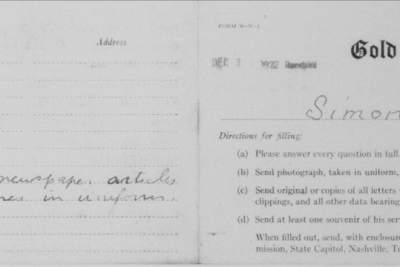 Address
newspaper articles
in uniform.
FORM
Gold
DEC 1922
Simon
Directions for filling:
(a) Please answer every question in full.
(b) Send photograph, taken in uniform,
(c) Send original or copies of all letters
clippings, and all other data bearing
(d) Send at least one souvenir of his ser
When filled out, send, with enclosure
mission, State Capitol, Nashville, T